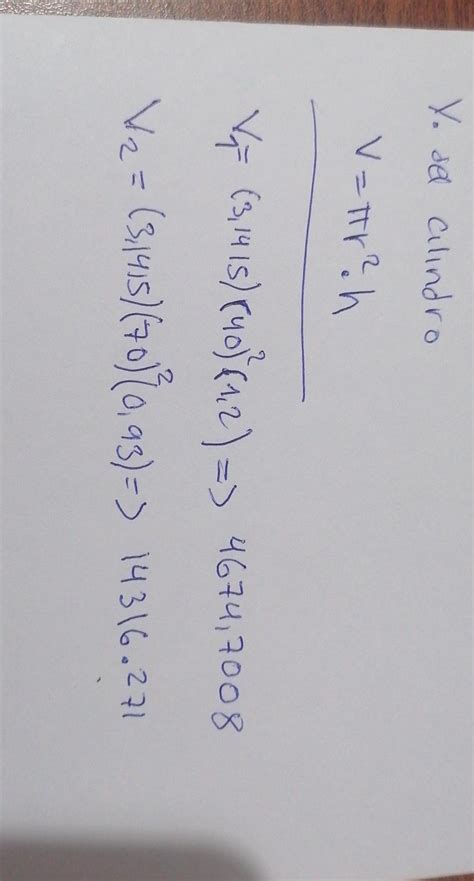 V. del cilindro
V = πr².h
V₁ = (3,1415)(40)²(1,2) => 4674,7008
V₂ = (3,1415)(70)²(0,93) => 14316.271